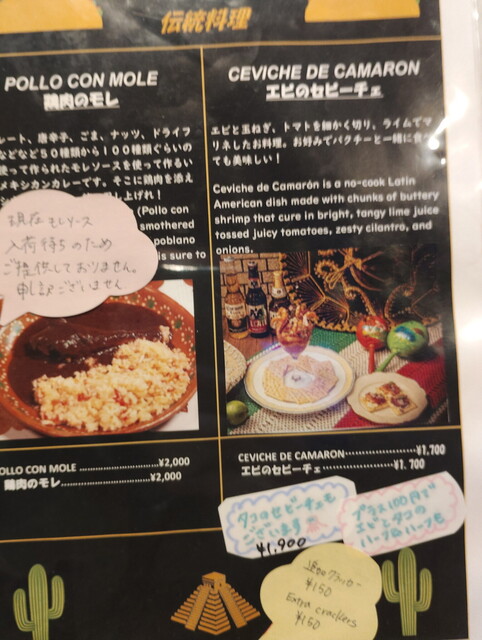 伝統料理
POLLO CON MOLE
鶏肉のモレ
レート、唐辛子、ごま、ナッツ、ドライフ
などなど50種類から100種類ぐらいの
使って作られたモレソースを使って作るい
メキシカンカレーです。そこに鶏肉を添え
し上げれ！
(Pollo con
smothered
poblano
is sure to
現在モレソース
入荷待ちのため
ご提供しておりません。
申し訳ございません
POLLO CON MOLE ¥2,000
鶏肉のモレ ¥2,000
CEVICHE DE CAMARON
エビのセビーチェ
エビと玉ねぎ、トマトを細かく切り、ライムでマ
リネしたお料理。お好みでパクチーと一緒に食べ
ても美味しい！
Ceviche de Camarón is a no-cook Latin
American dish made with chunks of buttery
shrimp that cure in bright, tangy lime juice
tossed juicy tomatoes, zesty cilantro, and
onions.
CEVICHE DE CAMARON ¥1,700
エビのセビーチェ ¥1,700
タコのセビーチェも
ございます
¥1,900
プラス100円で
エビとタコの
ハーフ&ハーフも
¥150
Extra crackers
¥150